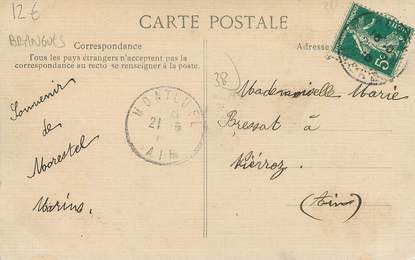 12€
BRANGUES
CARTE POSTALE
Correspondance
Tous les pays étrangers n'acceptent pas la
correspondance au recto se renseigner à la poste.
Adresse
38
Souvenir
de
Morestel
Marius.
MONTLUEL
21
AIN
Mademoiselle Marie
Bressat à
(Ain)